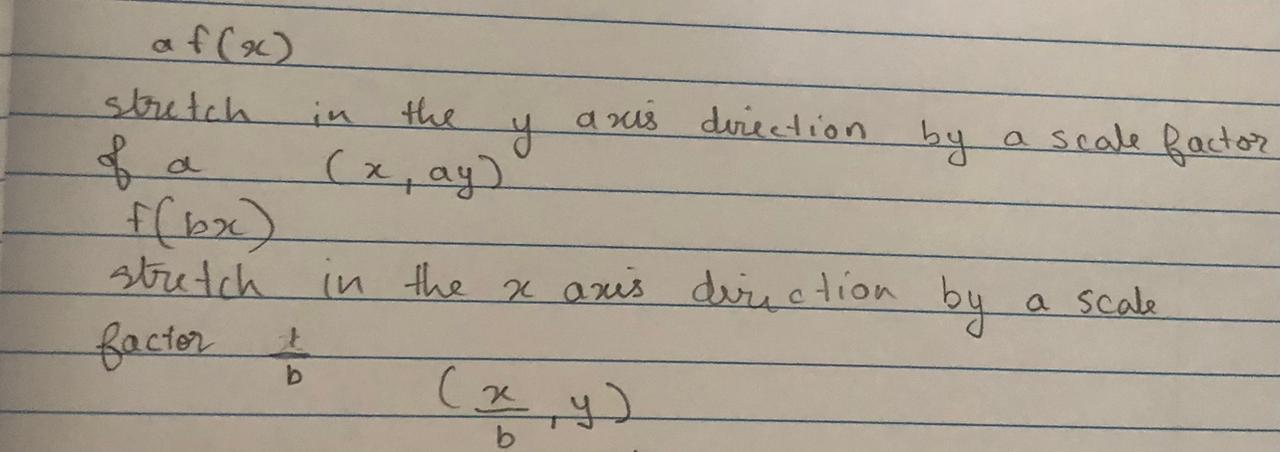 a f(x)
stretch in the y axis direction by a scale factor
of a (x, ay)
f(bx)
stretch in the x axis direction by a scale
factor 1/b
(x/b, y)